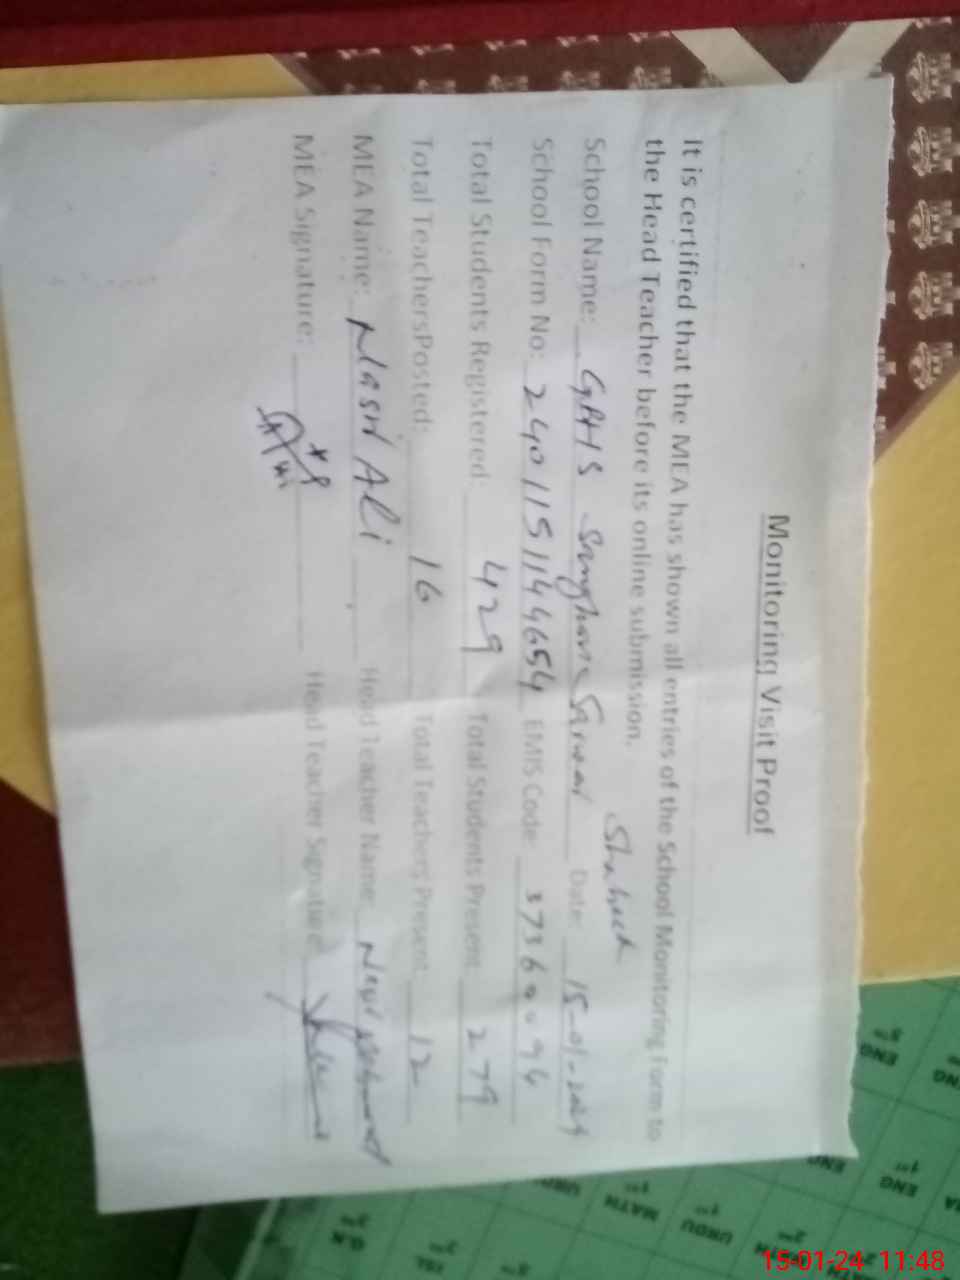 Monitoring Visit Proof
It is certified that the MEA has shown all entries of the School Monitoring Form to
the Head Teacher before its online submission.
Shaheed
School Name: GBHS Sarwar Date: 15-01-2024
School Form No: 2401151144654 EMIS Code: 37360096
Total Students Registered: 429 Total Students Present 279
Total TeachersPosted: 16 Total Teachers Present 12
MEA Name: Nasir Ali Head Teacher Name:
MEA Signature: Head Teacher Signature
ENG
ENG
ENG
ENG
URDU
MATH
URDU
G.N
ISL
15-01-24 11:48